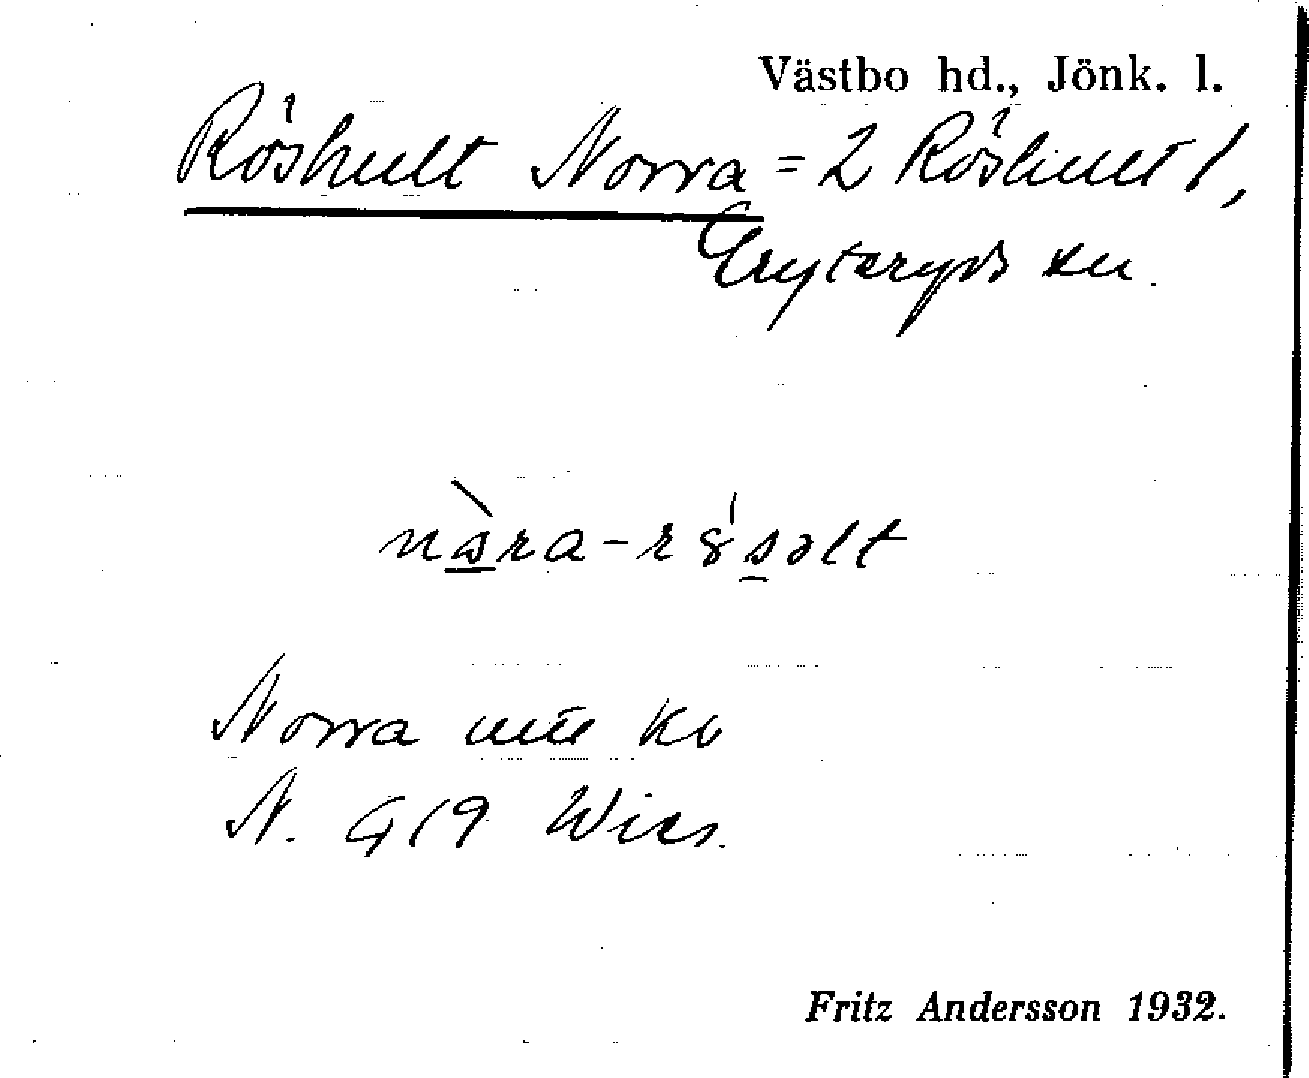 Västbo hd., Jönk. l.
Röshult Norra = 2 Röshult 1,
Gryteryds sn.
nàra-rö́səlt
Norra
N. G 19
Fritz Andersson 1932.